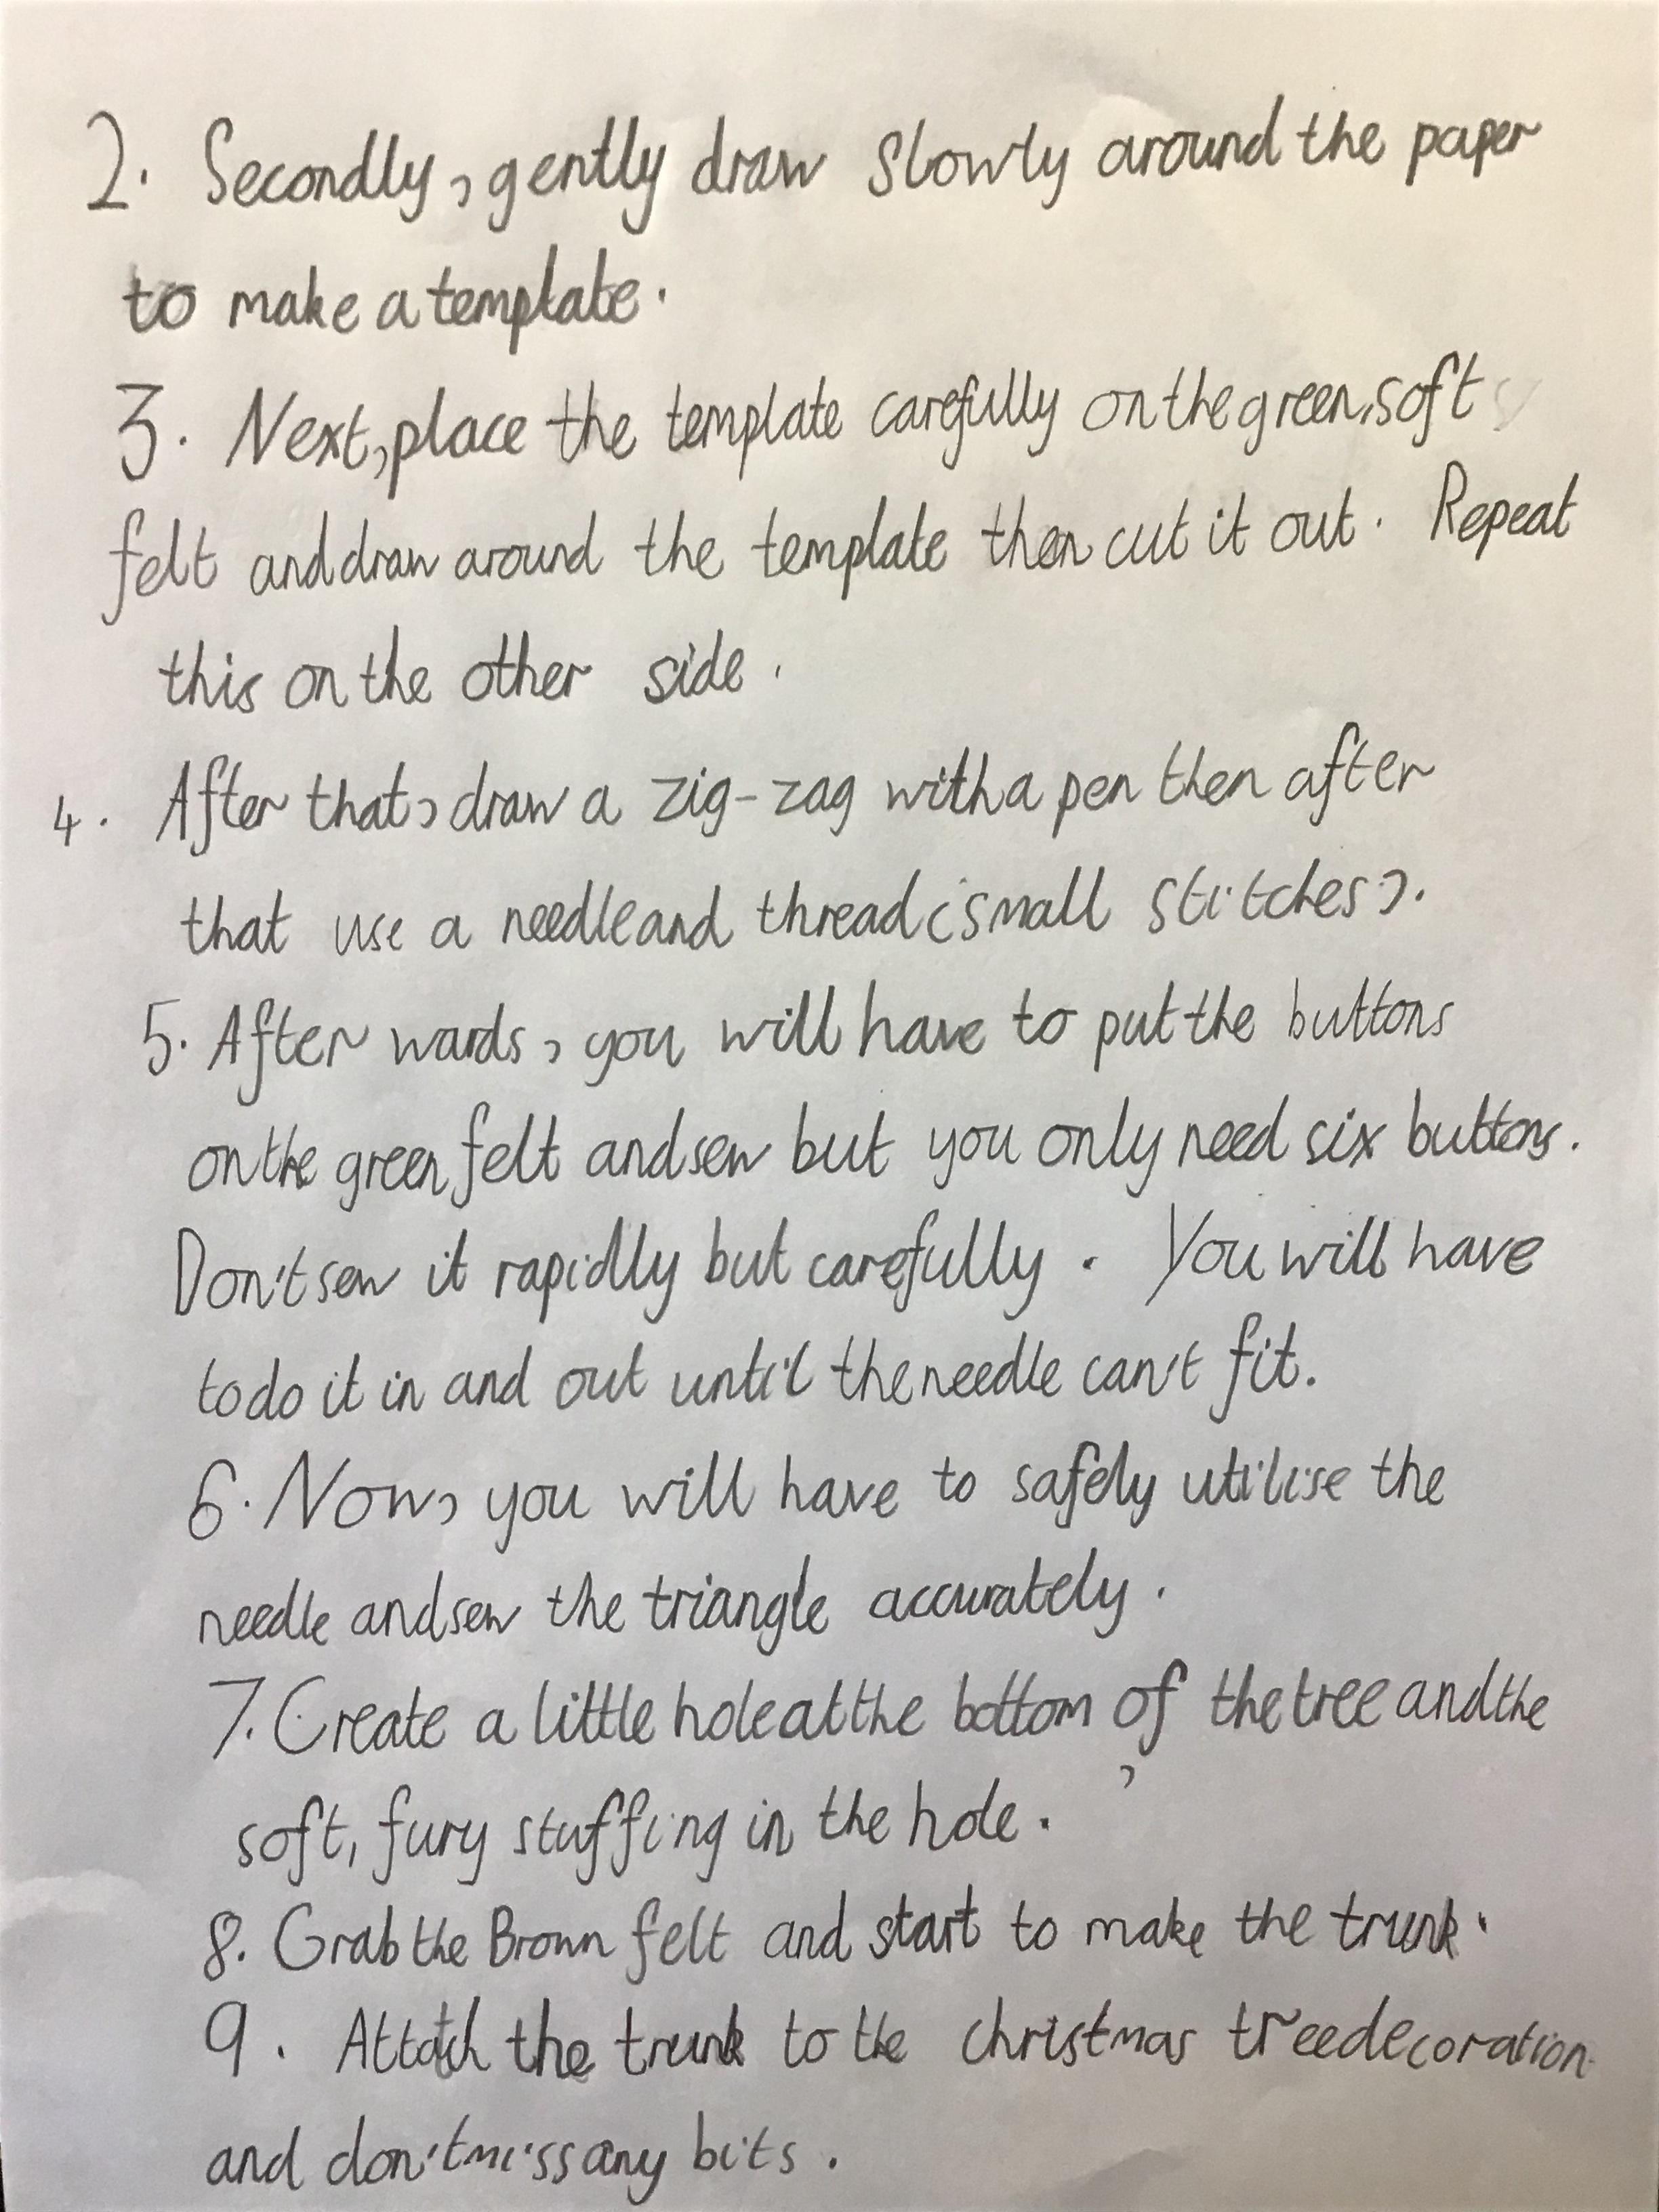 2. Secondly, gently draw slowly around the paper
to make a template.
3. Next, place the template carefully on the green, soft
felt and draw around the template then cut it out. Repeat
this on the other side.
4. After that, draw a zig-zag with a pen then after
that use a needle and thread (small stitches).
5. After wards, you will have to put the buttons
on the green felt and sew but you only need six buttons.
Don't sew it rapidly but carefully. You will have
to do it in and out until the needle can't fit.
6. Now, you will have to safely utilise the
needle and sew the triangle accurately.
7. Create a little hole at the bottom of the tree and the
soft, fury stuffing in the hole.
8. Grab the Brown felt and start to make the trunk.
9. Attatch the trunk to the christmas tree decoration
and don't miss any bits.